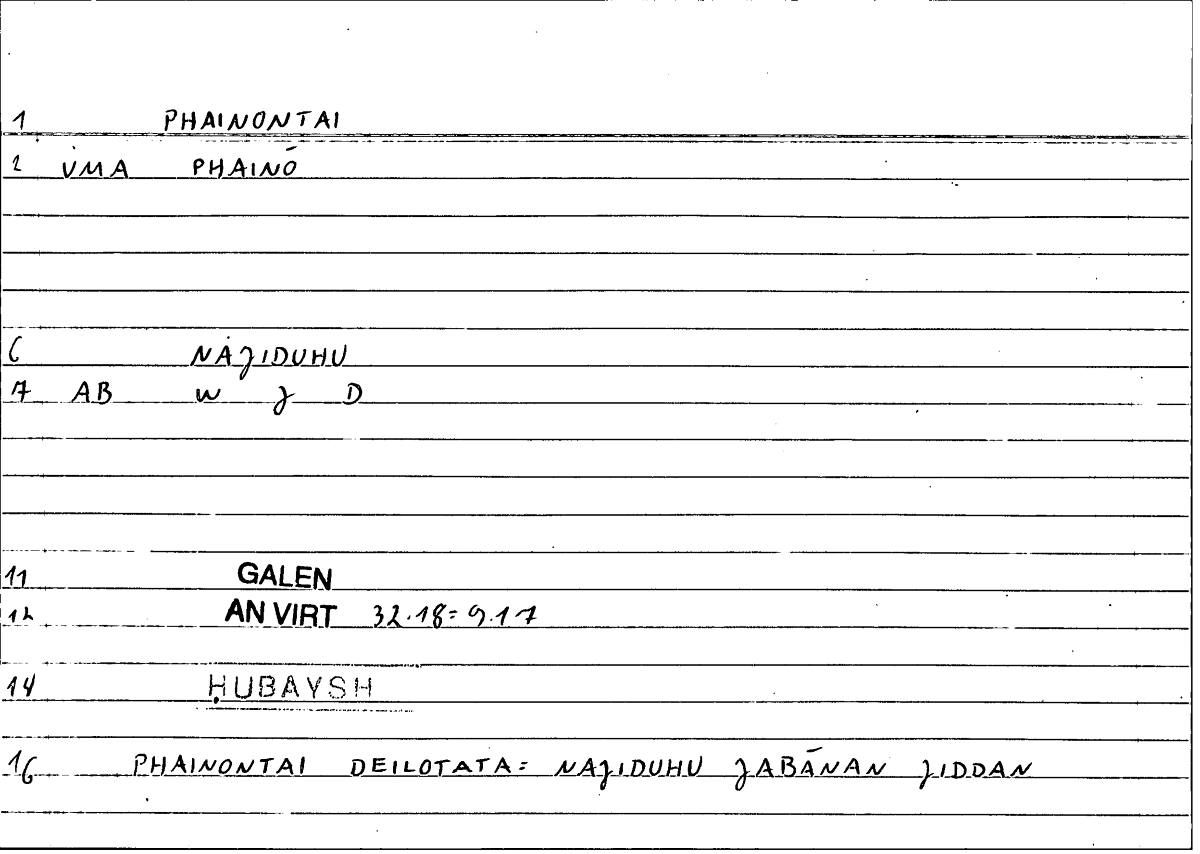 1 PHAINONTAI
2 VMA PHAINŌ
6 NAJIDUHU
7 AB W J D
11 GALEN
12 AN VIRT 32.18=9.17
14 ḤUBAYSH
16 PHAINONTAI DEILOTATA= NAJIDUHU JABĀNAN JIDDAN